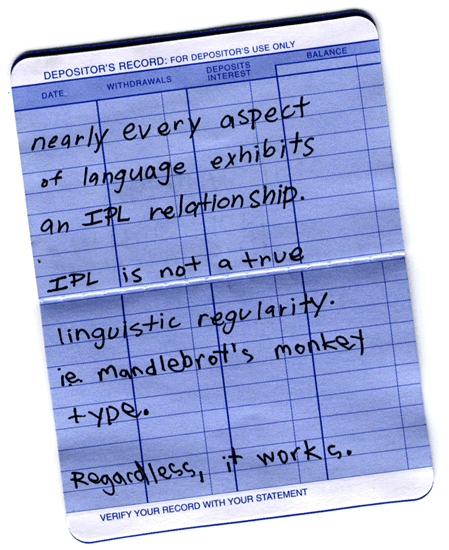 DEPOSITOR'S RECORD: FOR DEPOSITOR'S USE ONLY
DATE WITHDRAWALS DEPOSITS INTEREST BALANCE
nearly every aspect
of language exhibits
an IPL relationship.
IPL is not a true
linguistic regularity.
ie. mandlebrot's monkey
type.
Regardless, it works.
VERIFY YOUR RECORD WITH YOUR STATEMENT